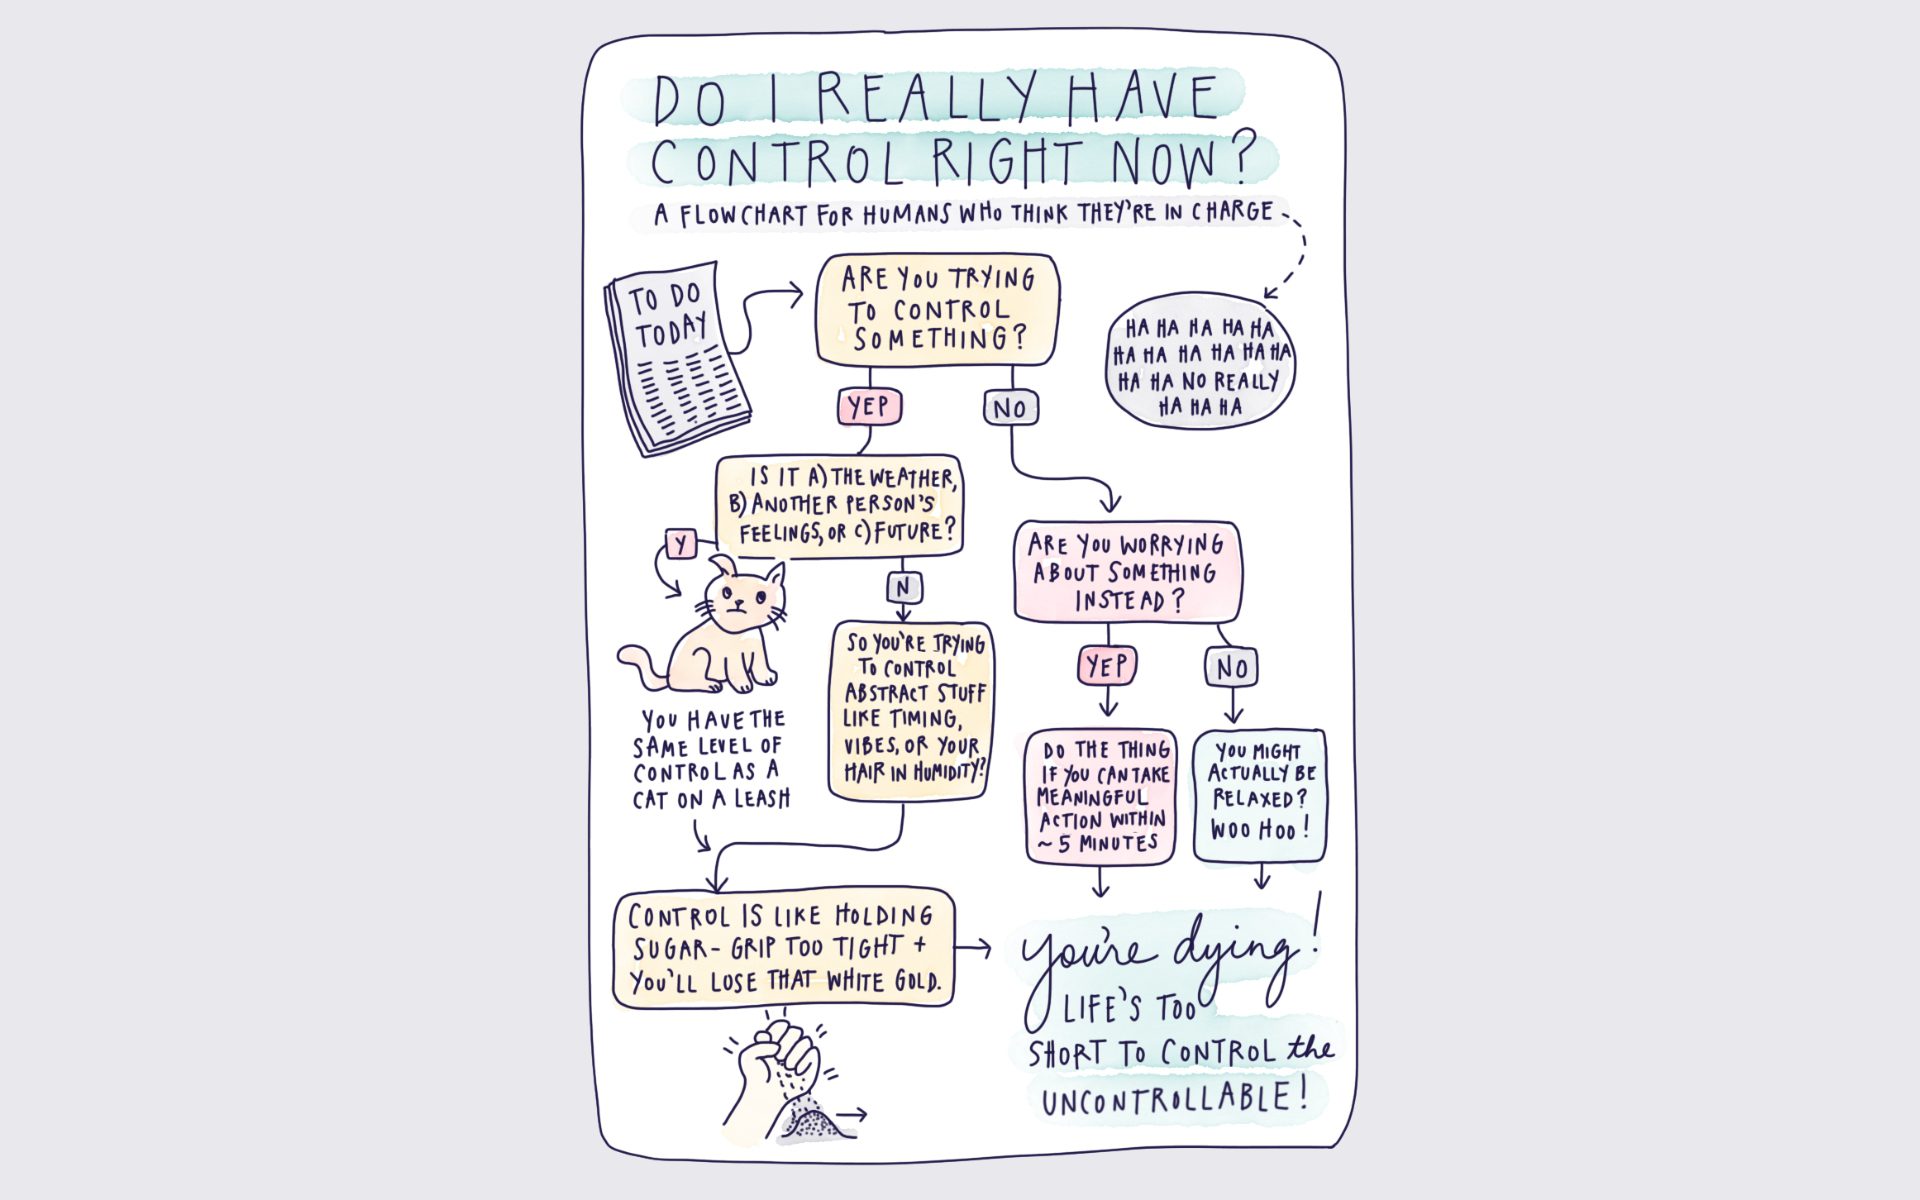 DO I REALLY HAVE
CONTROL RIGHT NOW?
A FLOWCHART FOR HUMANS WHO THINK THEY'RE IN CHARGE
TO DO
TODAY
ARE YOU TRYING
TO CONTROL
SOMETHING?
HA HA HA HA HA
HA HA HA HA HA HA
HA HA NO REALLY
HA HA HA
YEP
NO
IS IT A) THE WEATHER,
B) ANOTHER PERSON'S
FEELINGS, OR C) FUTURE?
Y
N
YOU HAVE THE
SAME LEVEL OF
CONTROL AS A
CAT ON A LEASH
SO YOU'RE TRYING
TO CONTROL
ABSTRACT STUFF
LIKE TIMING,
VIBES, OR YOUR
HAIR IN HUMIDITY?
ARE YOU WORRYING
ABOUT SOMETHING
INSTEAD?
YEP
NO
DO THE THING
IF YOU CAN TAKE
MEANINGFUL
ACTION WITHIN
~ 5 MINUTES
YOU MIGHT
ACTUALLY BE
RELAXED?
WOO HOO!
CONTROL IS LIKE HOLDING
SUGAR - GRIP TOO TIGHT +
YOU'LL LOSE THAT WHITE GOLD.
you're dying!
LIFE'S TOO
SHORT TO CONTROL the
UNCONTROLLABLE!